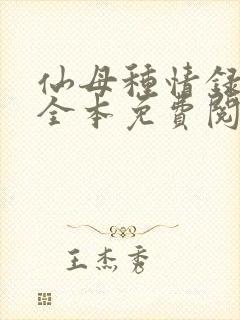 仙母種情録
全本免費閱
王杰秀